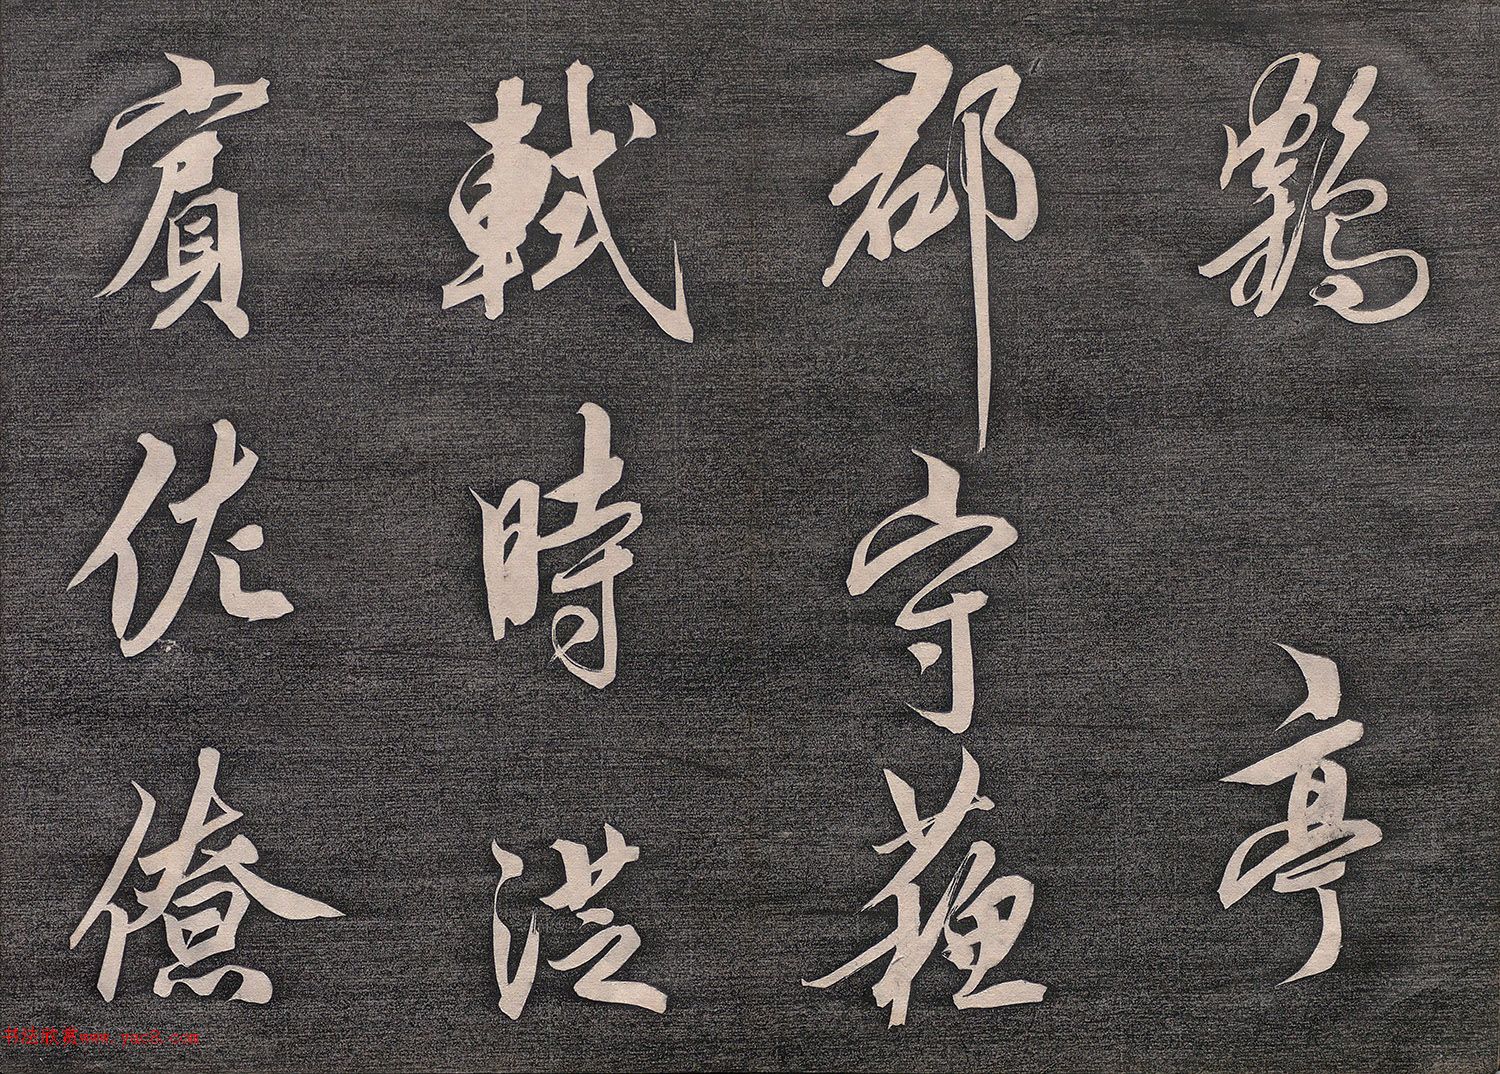 鶴亭
郡守蘇
軾時從
賓佐僚
书法欣赏www.yac8.com